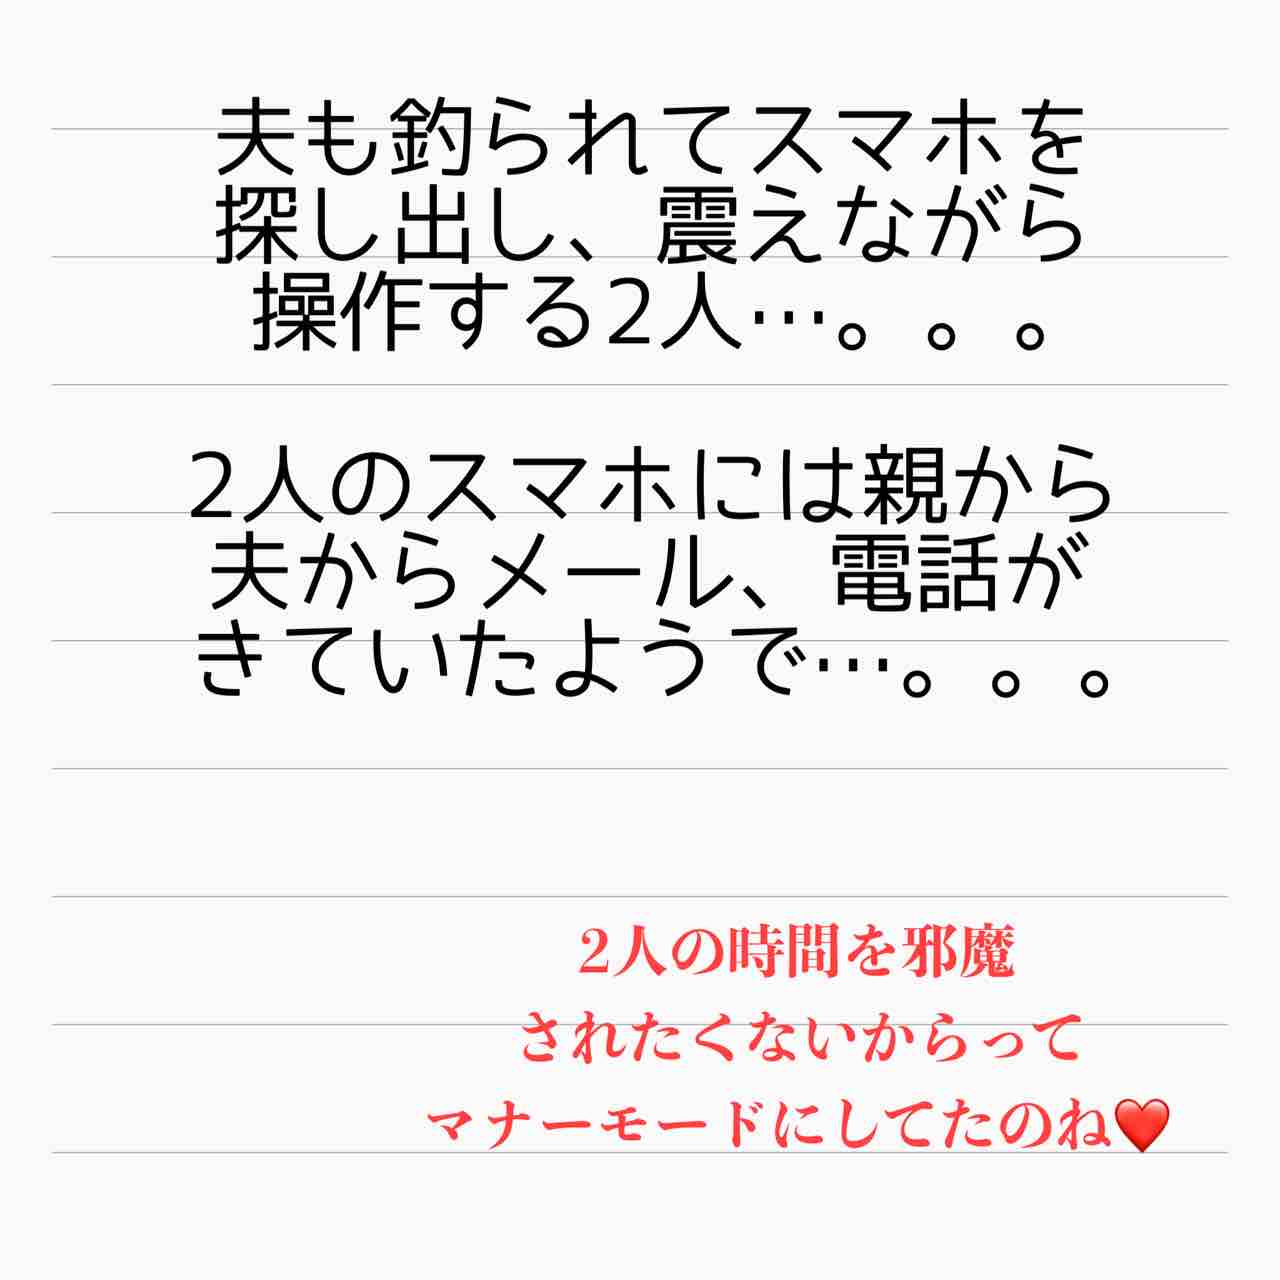 夫も釣られてスマホを
探し出し、震えながら
操作する2人…。。。
2人のスマホには親から
夫からメール、電話が
きていたようで…。。。
2人の時間を邪魔
されたくないからって
マナーモードにしてたのね❤️